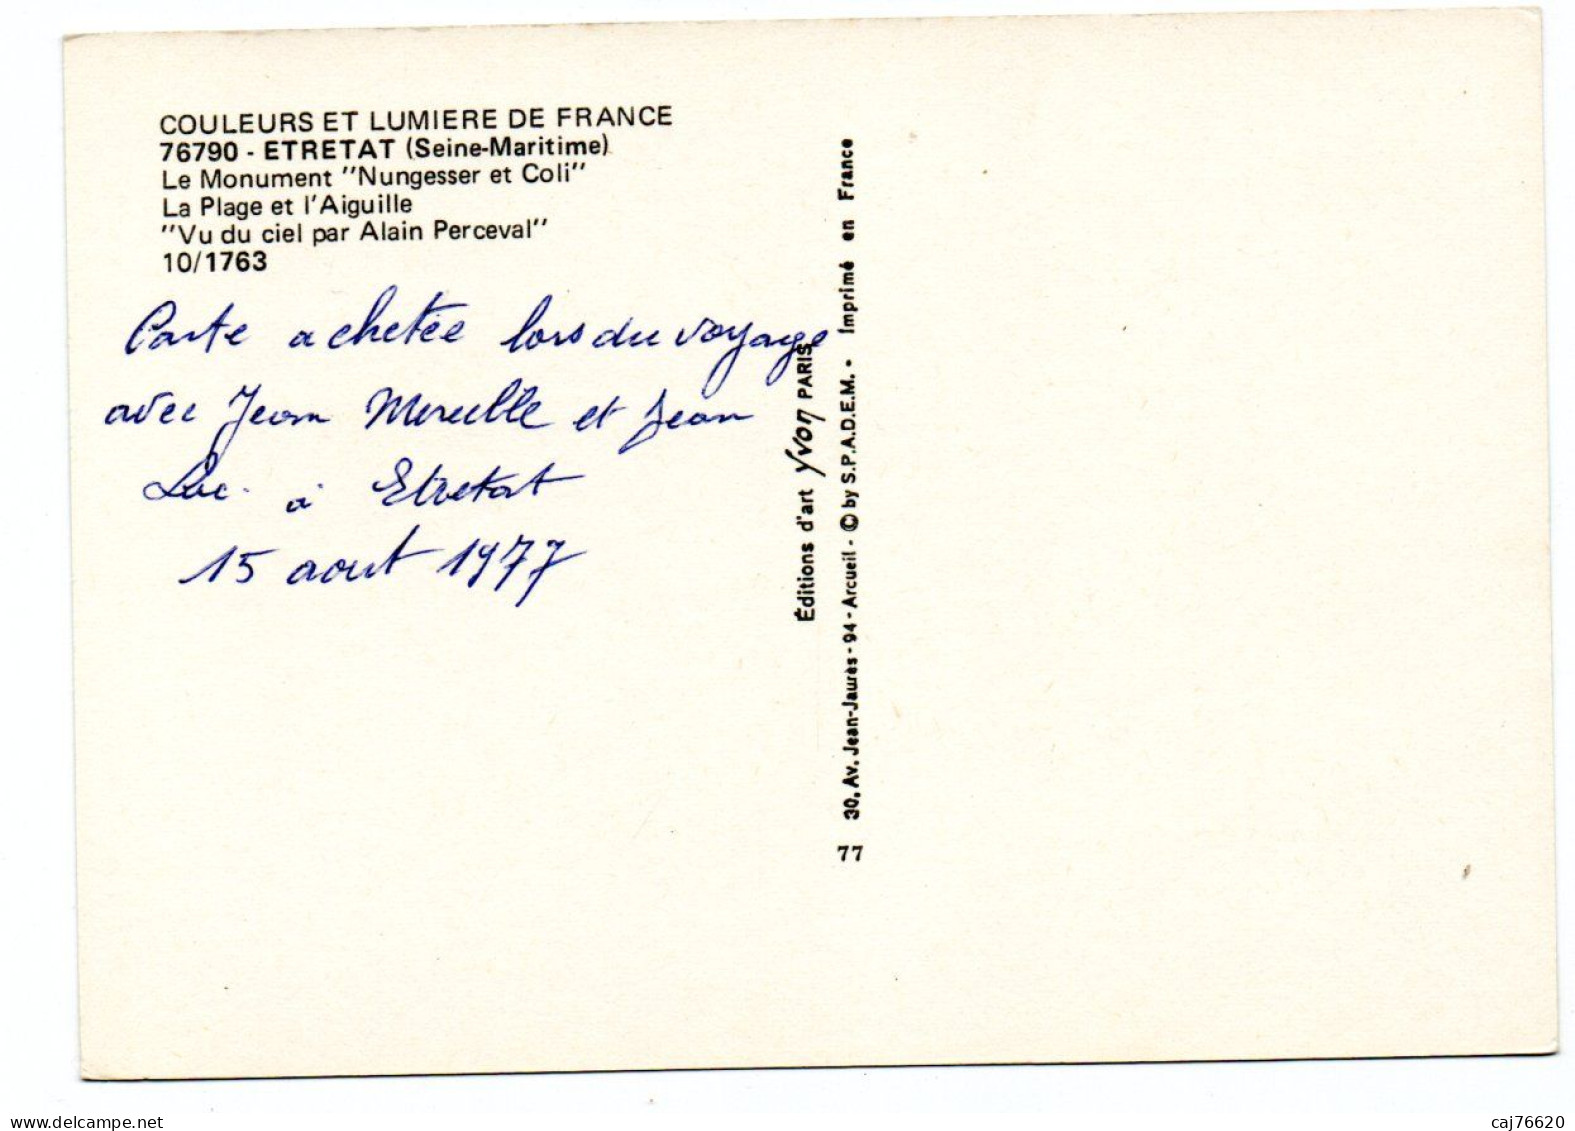 COULEURS ET LUMIERE DE FRANCE
76790 - ETRETAT (Seine-Maritime)
Le Monument "Nungesser et Coli"
La Plage et l'Aiguille
"Vu du ciel par Alain Perceval"
10/1763
Carte achetée lors du voyage
avec Jean Mireille et Jean
Luc. à Etretat
15 aout 1977
Éditions d'art Yvon PARIS
30, Av. Jean-Jaurès - 94 - Arcueil - © by S.P.A.D.E.M. - Imprimé en France
77
www.delcampe.net
caj76620